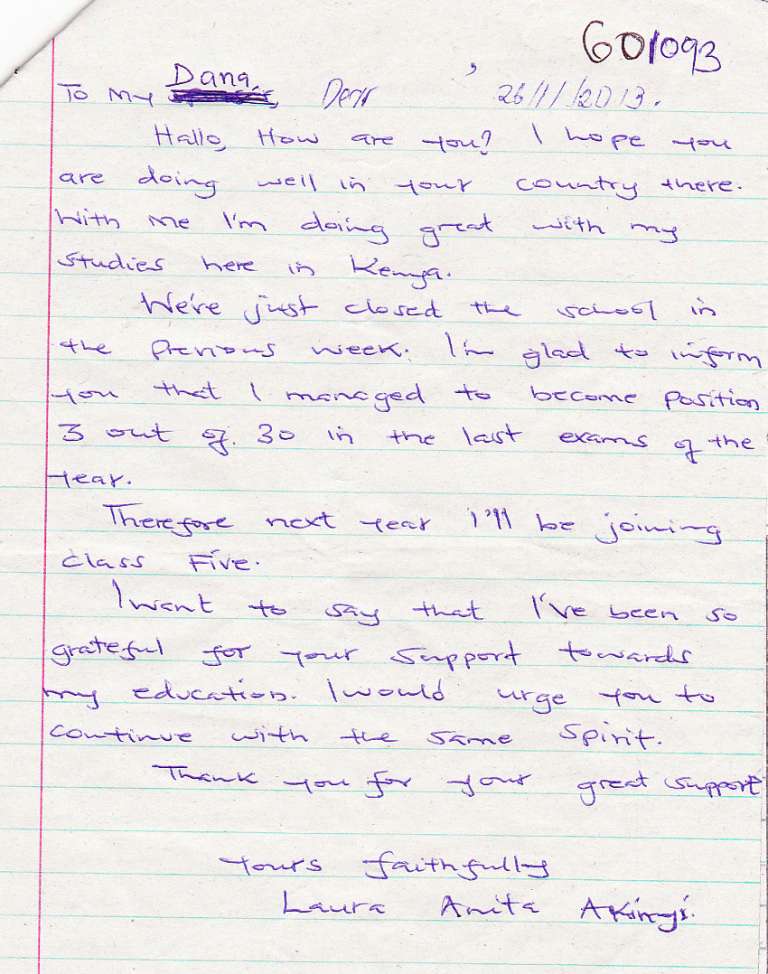 601093
Dana,
To My Dear 26/11/2013.
Hallo, How are you? I hope you
are doing well in your country there.
With me I'm doing great with my
studies here in Kenya.
We've just closed the school in
the previous week. I'm glad to inform
you that I managed to become position
3 out of. 30 in the last exams of the
year.
Therefore next year I'll be joining
class Five.
I want to say that I've been so
grateful for your support towards
my education. I would urge you to
continue with the same spirit.
Thank you for your great support
yours faithfully
Laura Anita Akinyi.